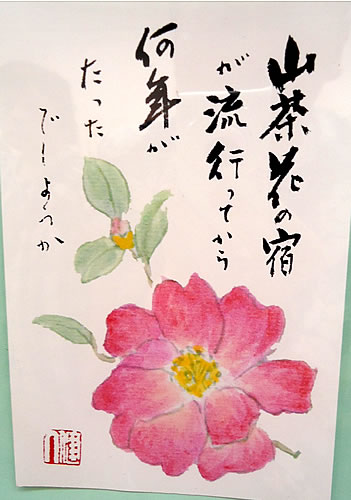 山茶花の宿
が流行ってから
何年が
たった
でしょうか